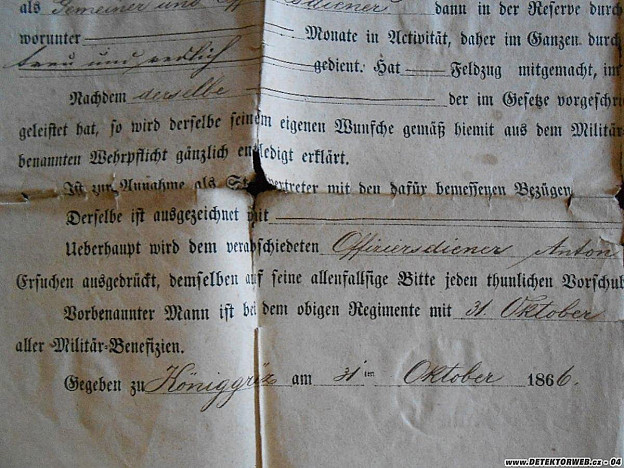 als Gemeiner und Offiziersdiener dann in der Reserve durch
worunter Monate in Activität, daher im Ganzen durch
treu und redlich gedient. Hat Feldzug mitgemacht, im
Nachdem derselbe der im Gesetze vorgeschri
geleistet hat, so wird derselbe seinem eigenen Wunsche gemäß hiemit aus dem Militär-
benannten Wehrpflicht gänzlich entledigt erklärt.
Ist zur Annahme als Stellvertreter mit den dafür bemessenen Bezügen
Derselbe ist ausgezeichnet mit
Ueberhaupt wird dem verabschiedeten Offiziersdiener Anton
Ersuchen ausgedrückt, demselben auf seine allenfallsige Bitte jeden thunlichen Vorschub
Vorbenannter Mann ist bei dem obigen Regimente mit 31. Oktober
aller Militär-Benefizien.
Gegeben zu Königgräz am 31ten Oktober 1866.
www.DETEKTORWEB.cz - 04